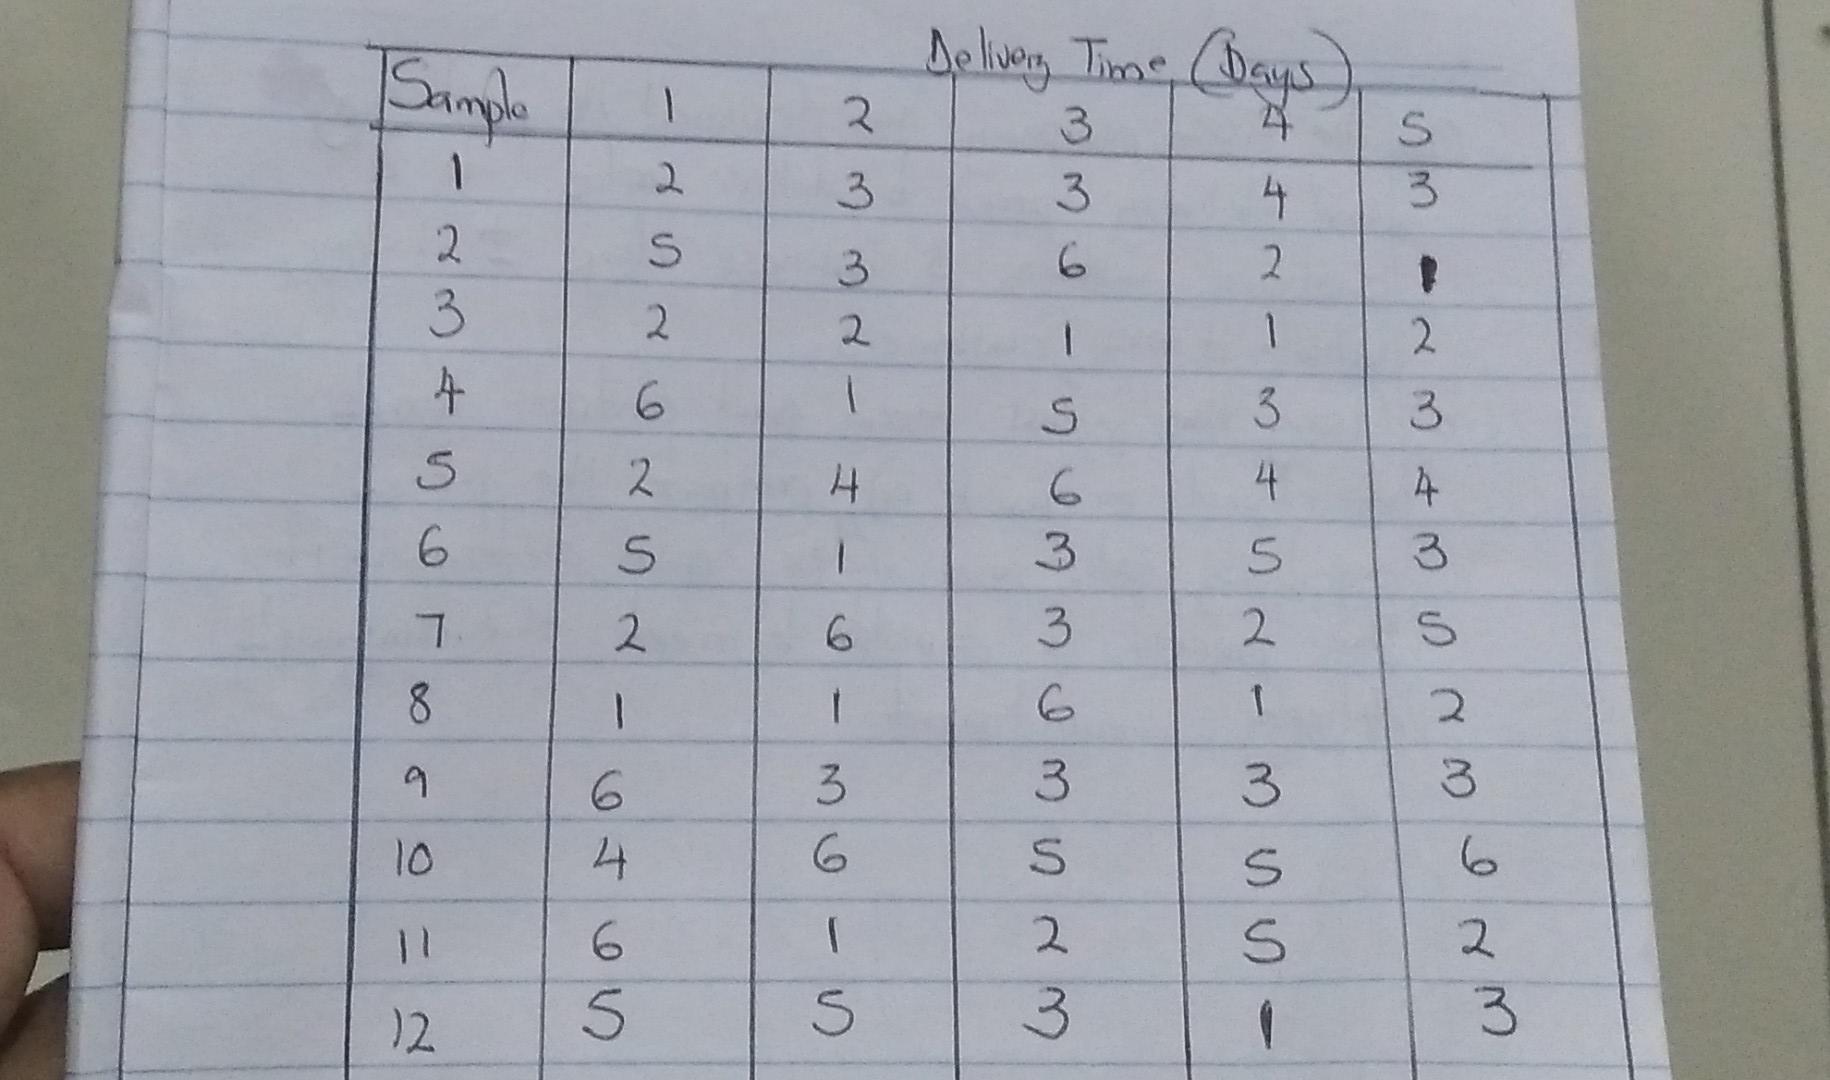 Delivery Time (Days)
Sample 1 2 3 4 5
1 2 3 3 4 3
2 5 3 6 2 1
3 2 2 1 1 2
4 6 1 5 3 3
5 2 4 6 4 4
6 5 1 3 5 3
7 2 6 3 2 5
8 1 1 6 1 2
9 6 3 3 3 3
10 4 6 5 5 6
11 6 1 2 5 2
12 5 5 3 1 3